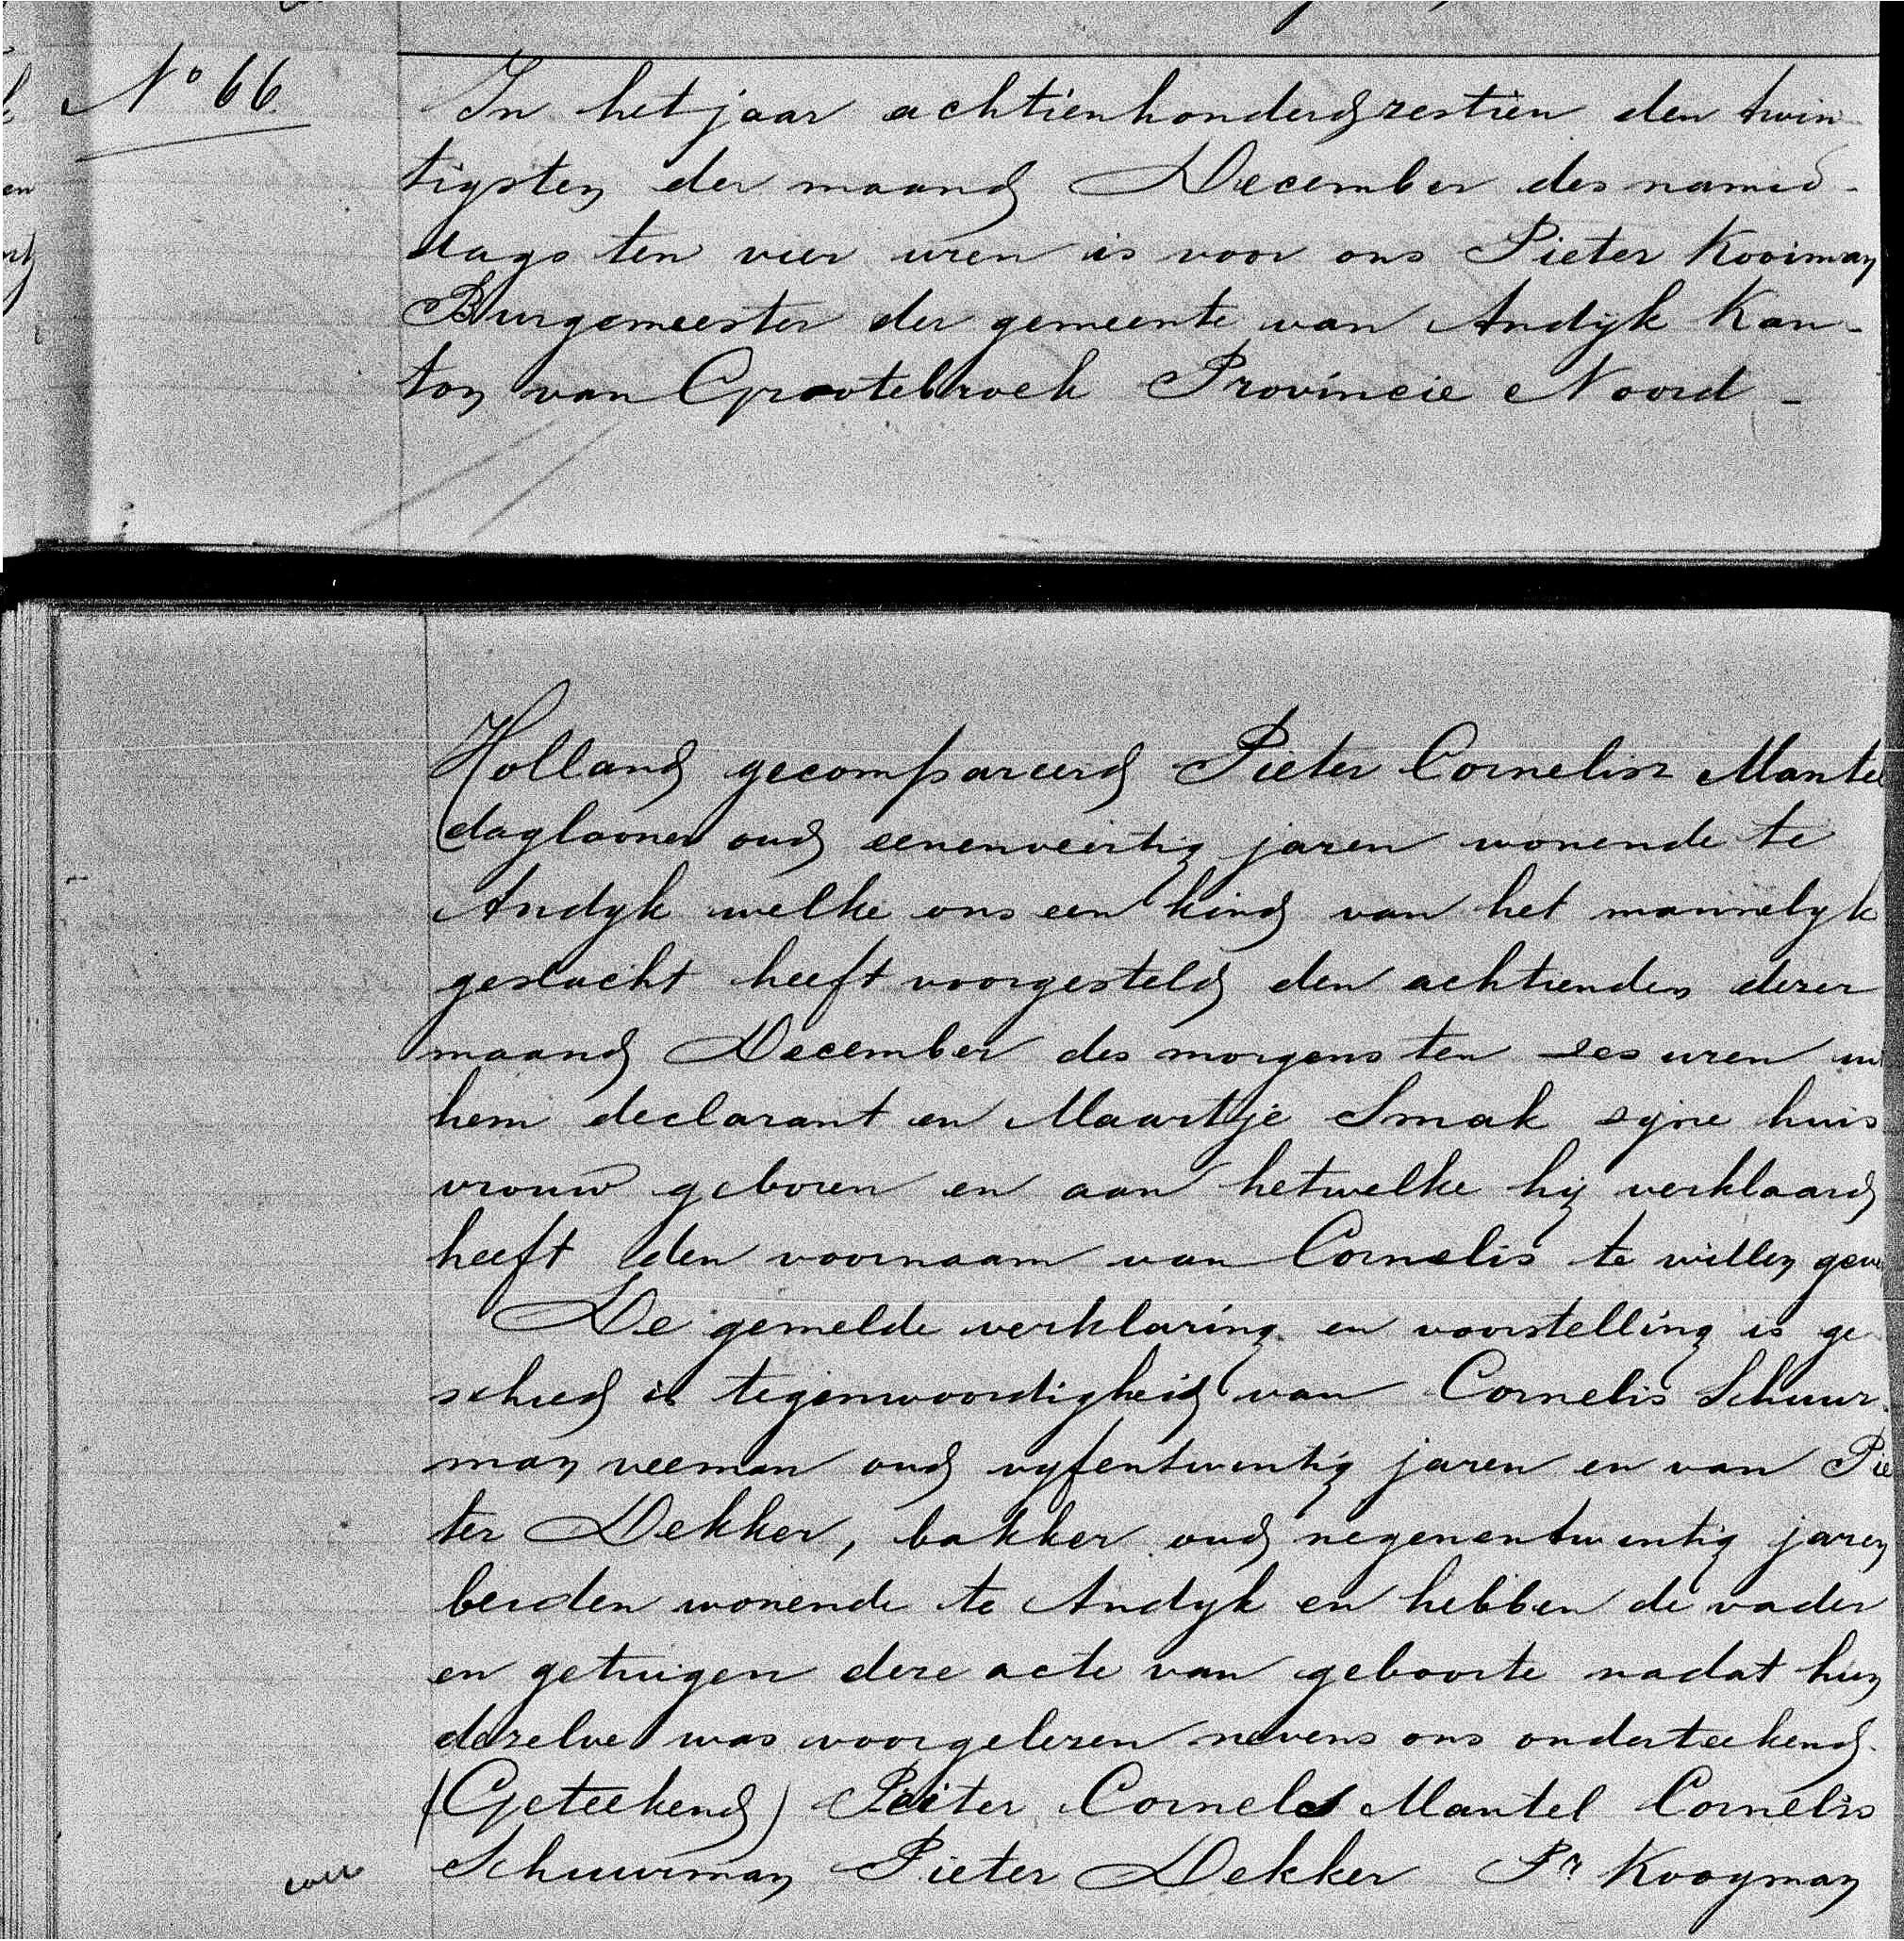 No 66.
In het jaar achtienhonderd zestien den twin
tigsten der maand December des namid-
dags ten vier uren is voor ons Pieter Kooiman
Burgemeester der gemeente van Andijk Kan-
ton van Grootebroek Provincie Noord -
Holland gecompareerd Pieter Cornelisz Mantel
daglooner oud eenenveertig jaren wonende te
Andijk welke ons een kind van het mannelyk
geslacht heeft voorgesteld den achtienden dezer
maand December des morgens ten zes uren
hem declarant en Maartje Smak zijne huis
vrouw geboren en aan hetwelke hij verklaard
heeft den voornaam van Cornelis te willen
De gemelde verklaring en voorstelling is ge
schied in tegenwoordigheid van Cornelis Schuur-
man veeman oud vyfentwintig jaren en van Pie
ter Dekker, bakker oud negenentwintig jaren
beiden wonende te Andyk en hebben de vader
en getuigen deze acte van geboorte nadat hun
dezelve was voorgelezen nevens ons onderteekend.
(Geteekend) Peiter Cornels Mantel Cornelis
Schuurman Pieter Dekker Pr Kooyman